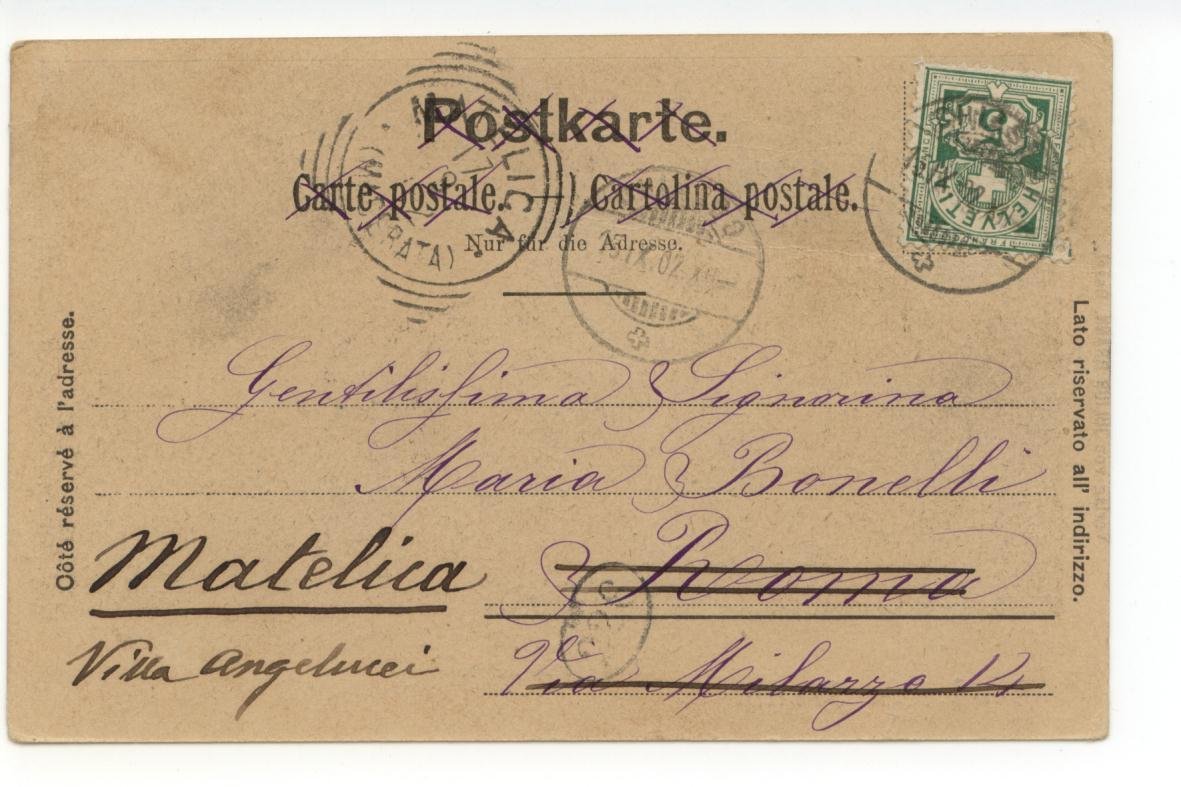 Postkarte.
Carte postale. — Cartolina postale.
Nur für die Adresse.
MATELICA
(MACERATA)
17
13 IX.02.XII—
5
HELVETIA
Côté réservé à l'adresse.
Lato riservato all' indirizzo.
Gentilissima Signorina
Maria Bonelli
Roma
Via Milazzo 14
Matelica
Villa Angelucci